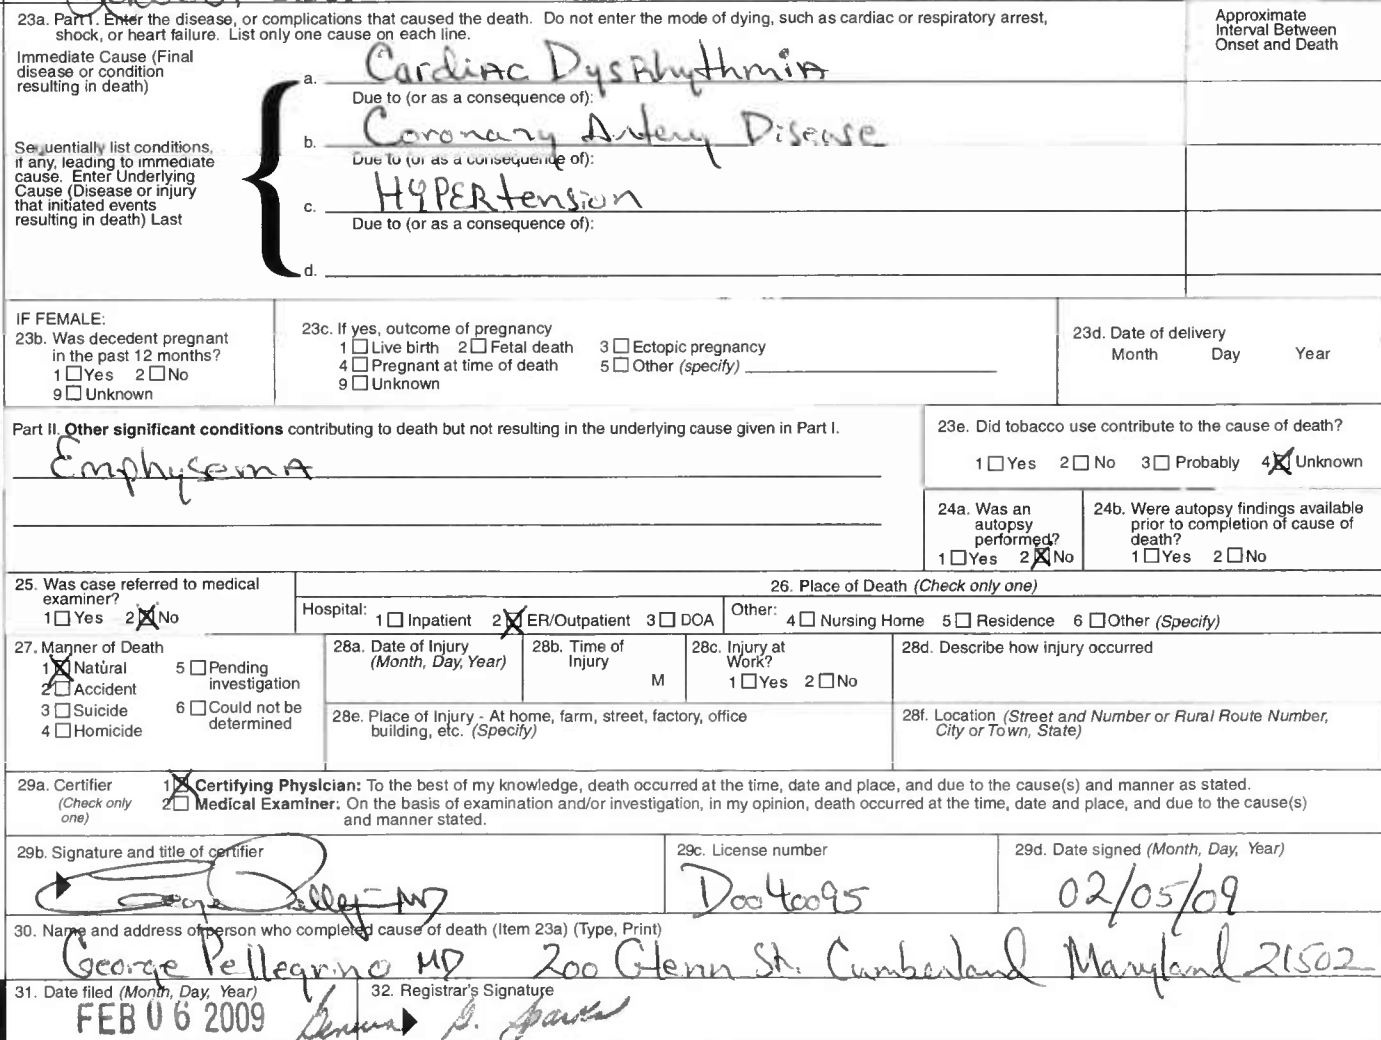 23a. Part I. Enter the disease, or complications that caused the death. Do not enter the mode of dying, such as cardiac or respiratory arrest,
shock, or heart failure. List only one cause on each line.
Approximate
Interval Between
Onset and Death
Immediate Cause (Final
disease or condition
resulting in death)
a. Cardiac Dysrhythmia
Due to (or as a consequence of):
b. Coronary Artery Disease
Sequentially list conditions,
if any, leading to immediate
cause. Enter Underlying
Cause (Disease or injury
that initiated events
resulting in death) Last
Due to (or as a consequence of):
c. HYPERtension
Due to (or as a consequence of):
d.
IF FEMALE:
23b. Was decedent pregnant
in the past 12 months?
1 ☐ Yes 2 ☐ No
9 ☐ Unknown
23c. If yes, outcome of pregnancy
1 ☐ Live birth 2 ☐ Fetal death 3 ☐ Ectopic pregnancy
4 ☐ Pregnant at time of death 5 ☐ Other (specify)
9 ☐ Unknown
23d. Date of delivery
Month Day Year
Part II. Other significant conditions contributing to death but not resulting in the underlying cause given in Part I.
Emphysema
23e. Did tobacco use contribute to the cause of death?
1 ☐ Yes 2 ☐ No 3 ☐ Probably 4 ☒ Unknown
24a. Was an
autopsy
performed?
1 ☐ Yes 2 ☒ No
24b. Were autopsy findings available
prior to completion of cause of
death?
1 ☐ Yes 2 ☐ No
25. Was case referred to medical
examiner?
1 ☐ Yes 2 ☒ No
26. Place of Death (Check only one)
Hospital: 1 ☐ Inpatient 2 ☒ ER/Outpatient 3 ☐ DOA Other: 4 ☐ Nursing Home 5 ☐ Residence 6 ☐ Other (Specify)
27. Manner of Death
1 ☒ Natural 5 ☐ Pending
investigation
2 ☐ Accident
3 ☐ Suicide 6 ☐ Could not be
determined
4 ☐ Homicide
28a. Date of Injury
(Month, Day, Year)
28b. Time of
Injury
M
28c. Injury at
Work?
1 ☐ Yes 2 ☐ No
28d. Describe how injury occurred
28e. Place of Injury - At home, farm, street, factory, office
building, etc. (Specify)
28f. Location (Street and Number or Rural Route Number,
City or Town, State)
29a. Certifier
(Check only
one)
1 ☒ Certifying Physician: To the best of my knowledge, death occurred at the time, date and place, and due to the cause(s) and manner as stated.
2 ☐ Medical Examiner: On the basis of examination and/or investigation, in my opinion, death occurred at the time, date and place, and due to the cause(s)
and manner stated.
29b. Signature and title of certifier
MD
29c. License number
D0040095
29d. Date signed (Month, Day, Year)
02/05/09
30. Name and address of person who completed cause of death (Item 23a) (Type, Print)
George Pellegrino MD 200 Glenn St. Cumberland Maryland 21502
31. Date filed (Month, Day, Year)
FEB 06 2009
32. Registrar's Signature